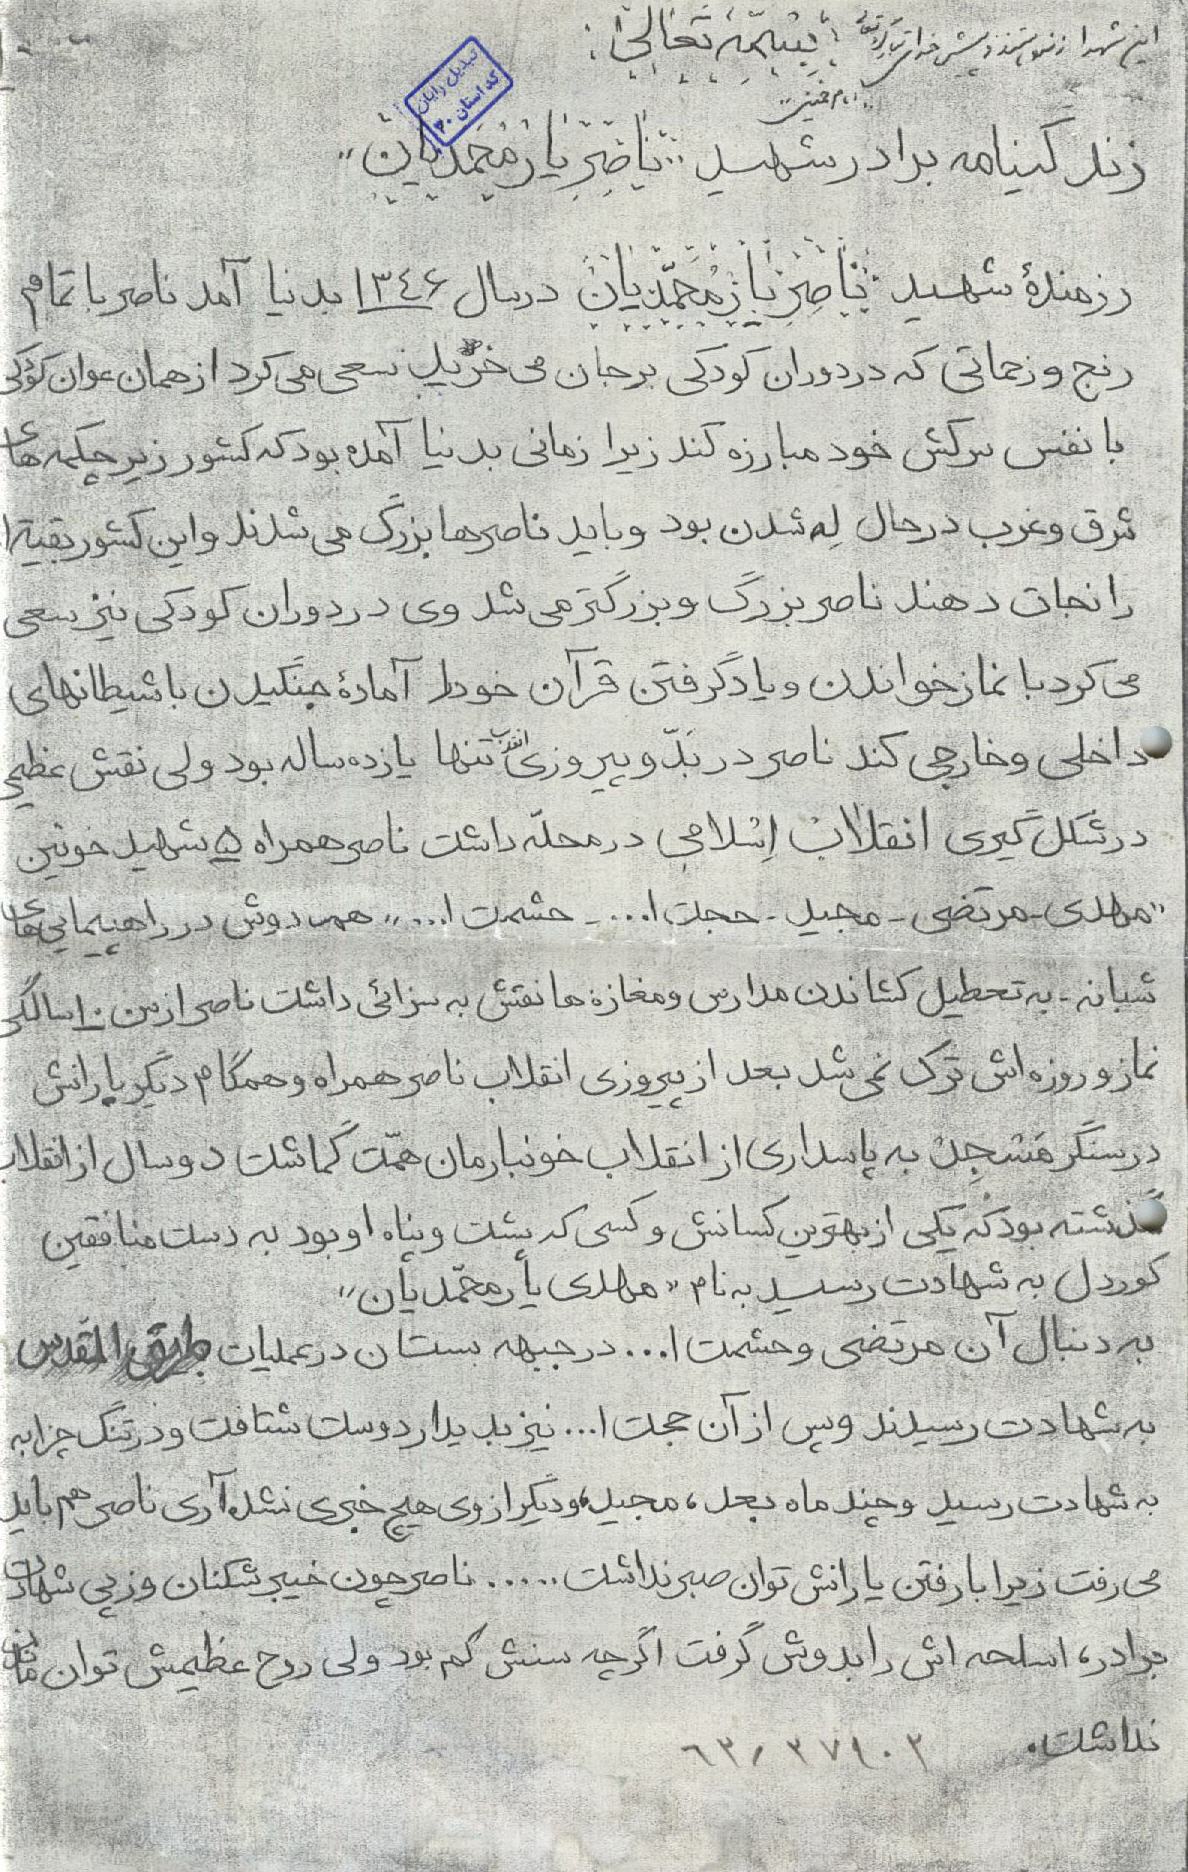 این شهدا زنده هستند و پیش خدای تبارک و تعالی
"امام خمینی"
بِسْمِهِ تَعالیٰ
تبدیل رایان
کد استان ۳۰
زندگینامه برادر شهید "ناصِر یارمُحَمّدیان"
رزمندهٔ شهید "ناصِر یارمُحَمّدیان" در سال ۱۳۴۶ بدنیا آمد ناصر با تمام
رنج و زحماتی که در دوران کودکی برجان می خرید سعی می کرد از همان عوان کودکی
با نفس سرکش خود مبارزه کند زیرا زمانی بدنیا آمده بود که کشور زیر چکمه های
شرق و غرب در حال لِه شدن بود و باید ناصرها بزرگ می شدند و این کشور بقیة ا
را نجات دهند ناصر بزرگ و بزرگتر می شد وی در دوران کودکی نیز سعی
می کرد با نماز خواندن و یادگرفتن قرآن خود را آمادهٔ جنگیدن با شیطانهای
داخلی و خارجی کند ناصر در بَدّو پیروزی انقلاب تنها یازده ساله بود ولی نقش عظیمی
در شکل گیری انقلاب اِسْلامی در محلّه داشت ناصر همراه ۵ شهید خونین
"مهدی - مرتضی - مجید - حجت ا... - حشمت ا..." همدوش در راهپیمایی های
شبانه - به تعطیل کشاندن مدارس و مغازه ها نقش به سزائی داشت ناصر از سن ۱۰ سالگی
نماز و روزه اش ترک نمی شد بعد از پیروزی انقلاب ناصر همراه و همگام دیگر یارانش
در سنگر مَسْجِدْ به پاسداری از انقلاب خونبارمان همّت گماشت دو سال از انقلاب
گذشته بود که یکی از بهترین کسانش و کسی که پشت و پناه او بود به دست منافقین
کوردل به شهادت رسید به نام "مهدی یارمحمّدیان"
به دنبال آن مرتضی و حشمت ا... در جبهه بستان در عملیات طریق القدس
به شهادت رسیدند و پس از آن حجت ا... نیز بدیدار دوست شتافت و در تنگ چزابه
به شهادت رسید و چند ماه بعد، مجید، و دیگر از وی هیچ خبری نشد آری ناصر هم باید
می رفت زیرا با رفتن یارانش توان صبر نداشت..... ناصر چون خیبرشکنان و زپی شهادت
برادر، اسلحه اش را بدوش گرفت اگرچه سنش کم بود ولی روح عظیمش توان ماندن
نداشت.
۶۳/۳۷۹۰۲